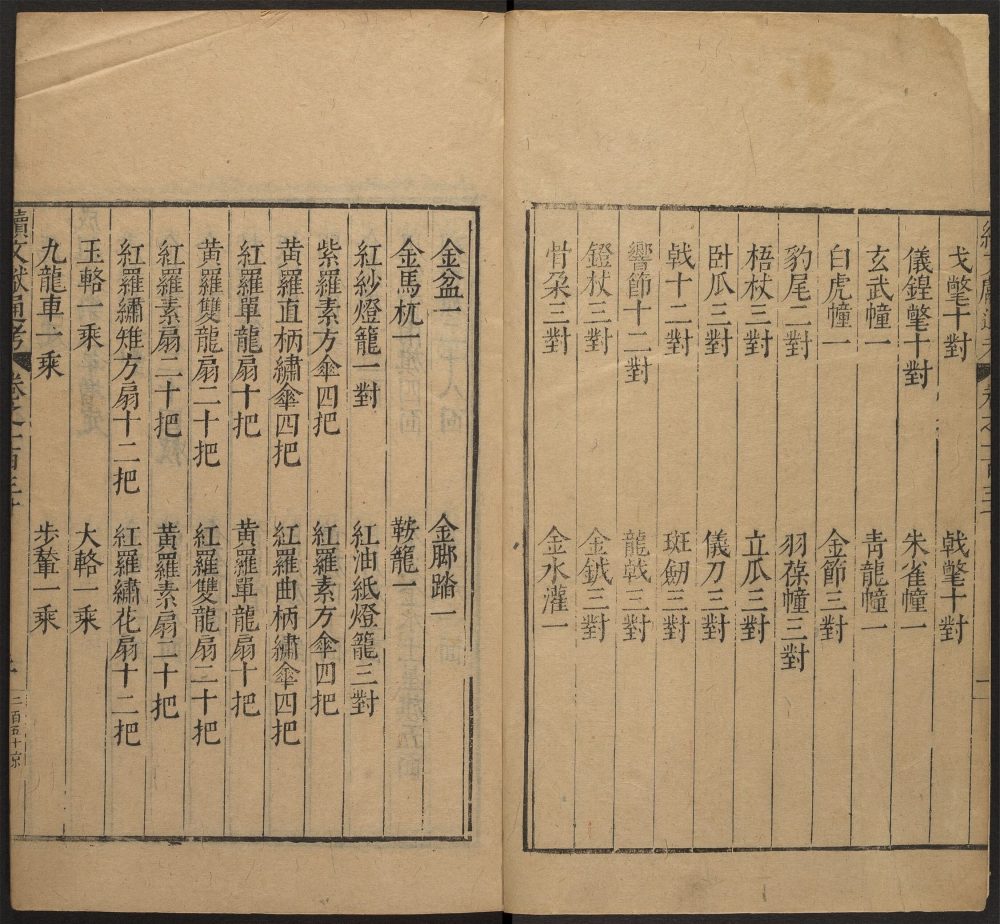 戈氅十對　戟氅十對
儀鍠氅十對　朱雀幢一
玄武幢一　青龍幢一
白虎幢一　金節三對
豹尾二對　羽葆幢三對
梧杖三對　立瓜三對
臥瓜三對　儀刀三對
戟十二對　斑劒三對
響節十二對　龍戟三對
鐙杖三對　金鉞三對
骨朶三對　金水灌一
金盆一　金脚踏一
金馬杌一　鞍籠一
紅紗燈籠一對　紅油紙燈籠三對
紫羅素方傘四把　紅羅素方傘四把
黄羅直柄繡傘四把　紅羅曲柄繡傘四把
紅羅單龍扇十把　黄羅單龍扇十把
黄羅雙龍扇二十把　紅羅雙龍扇二十把
紅羅素扇二十把　黄羅素扇二十把
紅羅繡雉方扇十二把　紅羅繡花扇十二把
玉輅一乘　大輅一乘
九龍車一乘　步輦一乘
續文獻通考　卷之一百三十　二百五十京